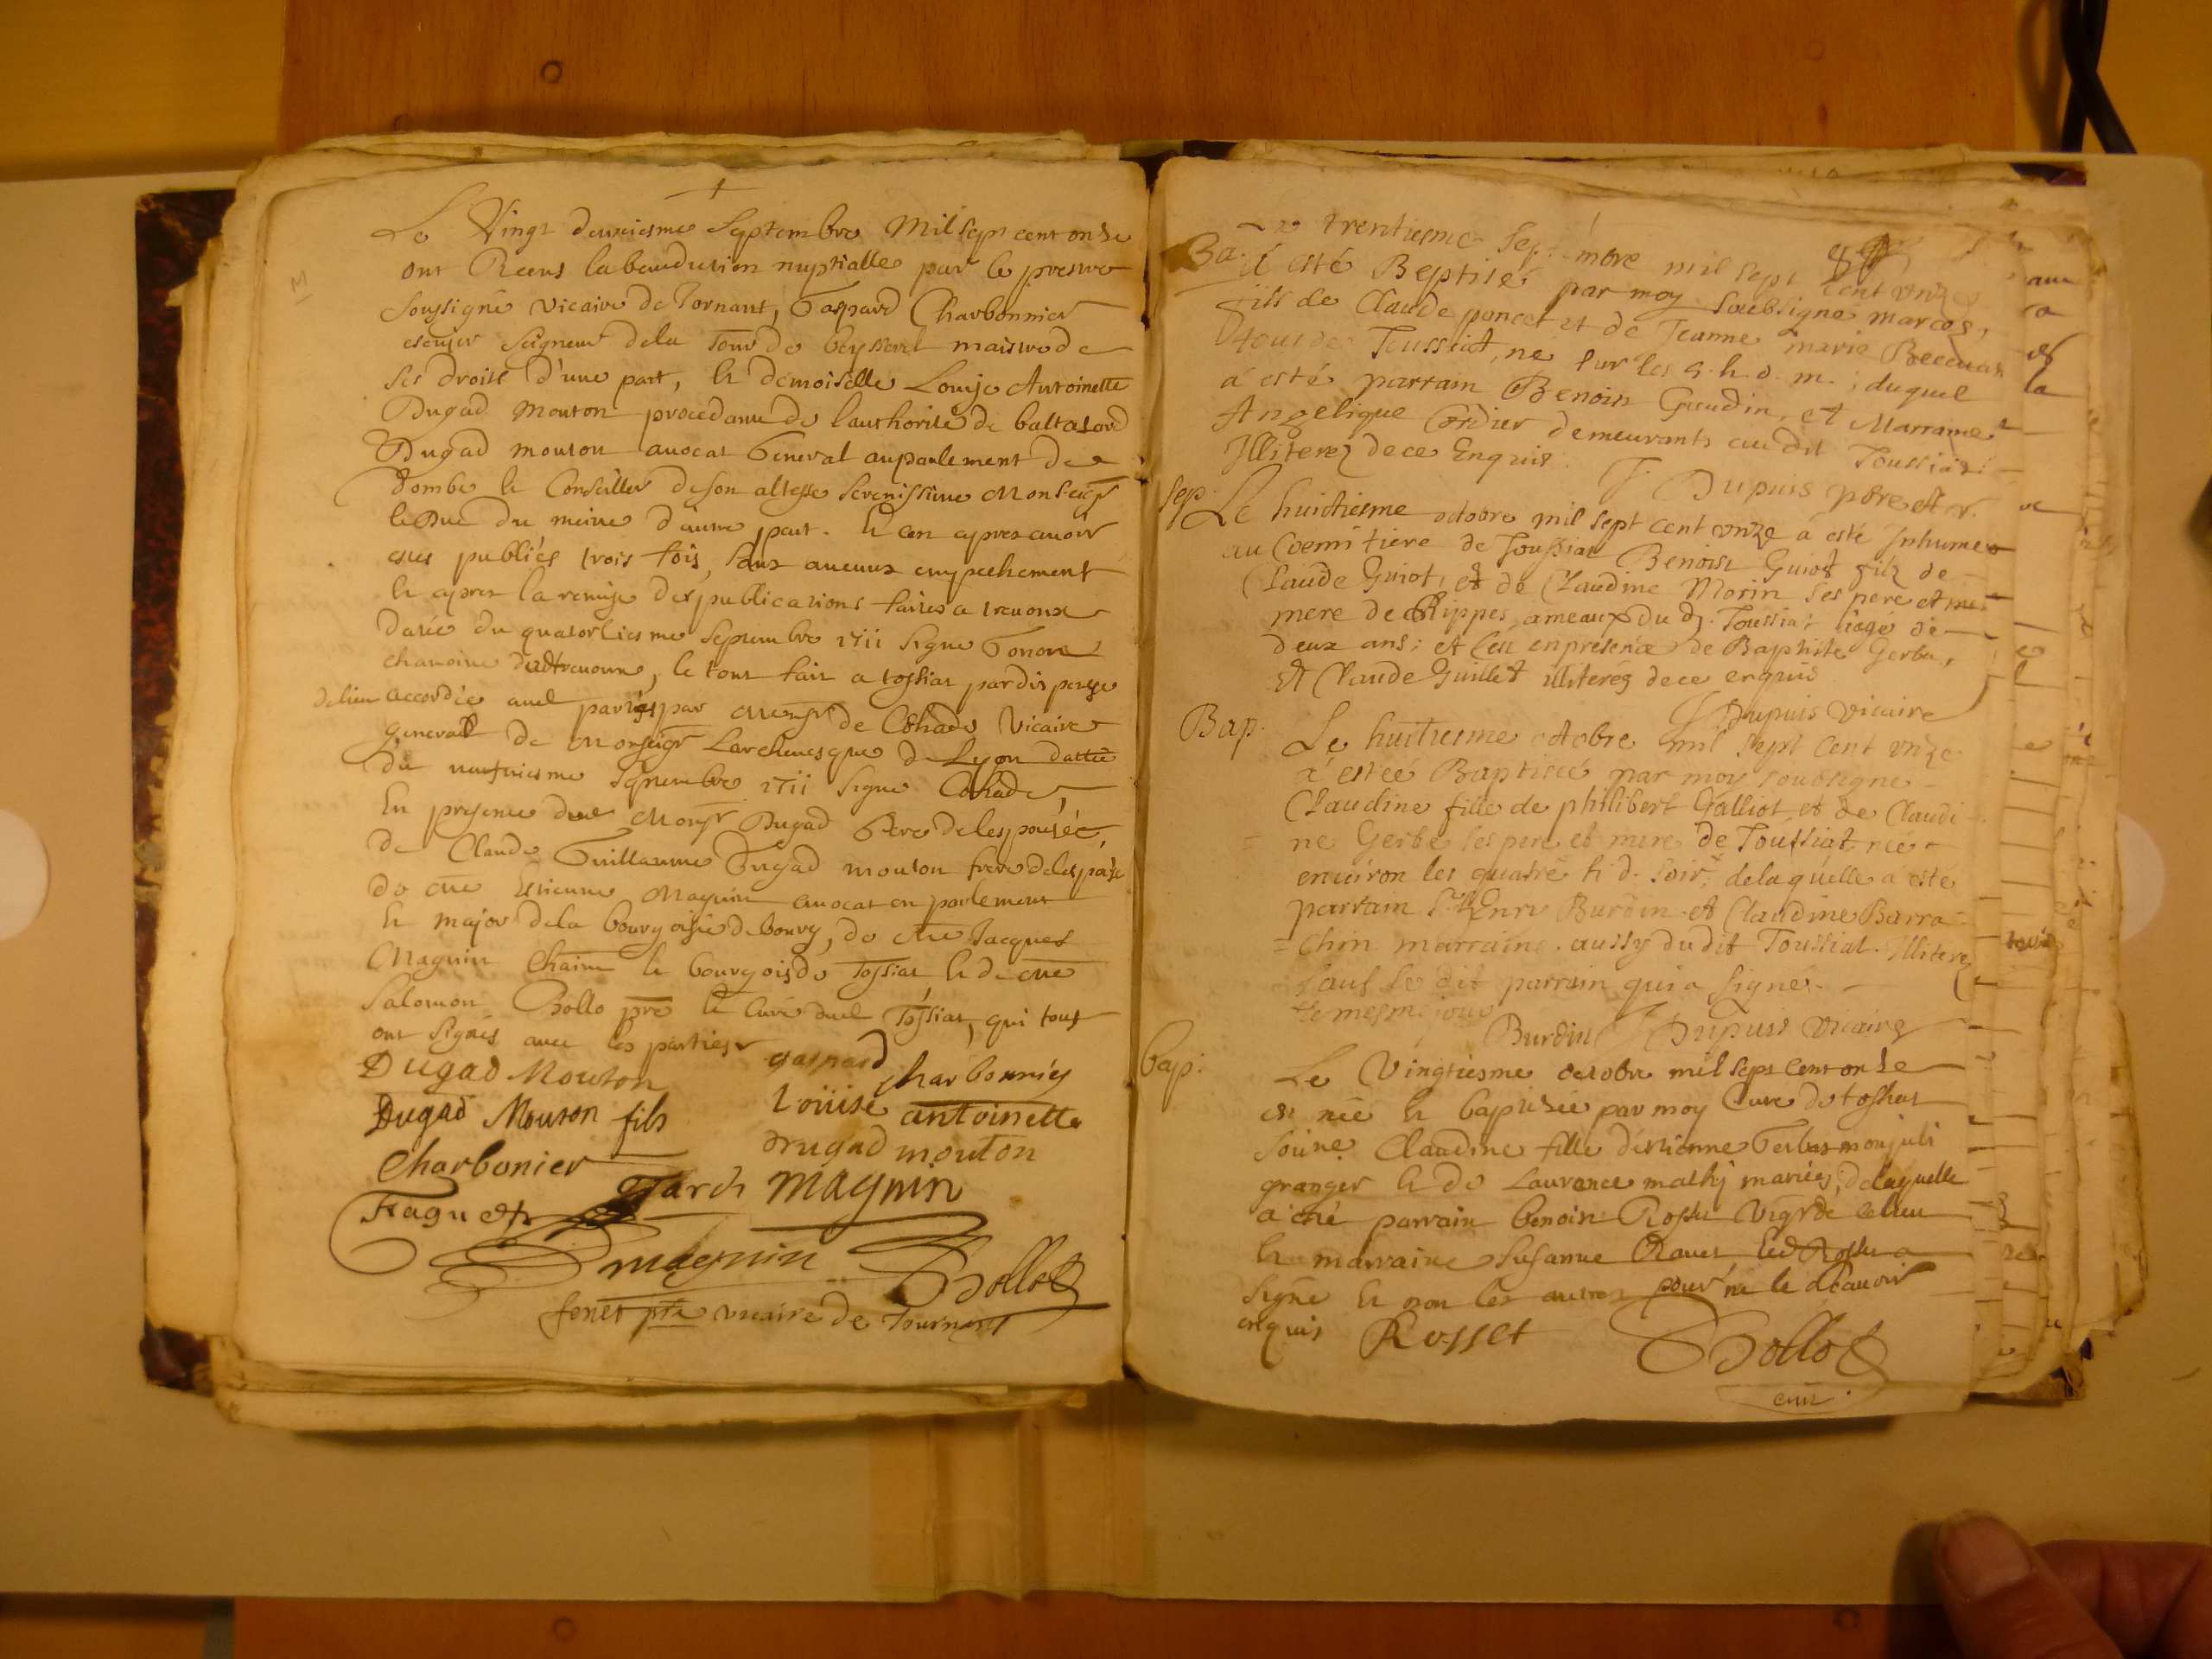 M
Le Vingt deuxiesme Septembre Mil sept cent onze
ont Receus la benediction nuptialle par le prestre
soussigné vicaire de Tornant, Gaspard Charbonnier
escuier Seigneur dela Tour de maistre de
ses droits d'une part, & demoiselle Louise Antoinette
Dugad Mouton procedante de l'authorité de baltasard
Dugad mouton avocat General au parlement de
dombe & Conseiller de son altesse serenissime Monseigr
le Duc du meine d'autre part. & ce apres avoir
estes publiés trois fois, sans aucunx empechement
& apres la remise des publications faites a trevoux
datée du quatorziesme septembre 1711 signe
chanoine dud trevoux, le tout fait a tossiat par dispense
de lieu accordée auxd parties par Monsr de Cohade Vicaire
general de Monseigr Larchevesque de Lyon dattée
du neufviesme septembre 1711 signe Cohade,
En presence dud Monsr Dugad Pere de lespousée,
de Claude Guillaume Dugad mouton frere de lespouse
de me Estienne Magnin avocat en parlement
& major dela bourgoisie de bourg, de me Jacques
Magnin & bourgois de Tossiat & de me
Salomon Bollo pre & curé dud Tossiat, qui tous
ont signés avec les parties
Dugad Mouton gaspard charbonnier
Dugad Mouton fils Loüise antoinette
Charbonier dugad mouton
Fragu magnin
magnin Bollo
fenet ptre vicaire de Tournant
Le trentiesme septembre mil sept cent unze
Ba. a esté Beptisé par moy soubsigné
fils de Claude poncet et de Jeanne marie
de Toussiat, né sur les 9. h. d. m.; duquel
a esté parrain Benoist Gaudin, et Marraine
Angelique Cordier demeurants audit Toussiat
Illiterez de ce Enquis. J. Dupuis pbre et v.
Sep. Le huictiesme octobre mil sept cent unze a esté Inhumé
au Coemitiere de Toussiat Benoist Guiot filz de
Claude Guiot, et de Claudine Morin ses pere et
mere de Rippes ameaux du d. Toussiat âgé de
deux ans; et ceu en presence de Baptiste Gerba,
et Claude Guillet illiteréz de ce enquis
J Dupuis vicaire
Bap. Le huitiesme octobre mil sept cent unze
a esteé Baptiscé par moy soubsigne
Claudine fille de philibert Galliot et de Claudi-
ne Gerbe ses pere et mere de Toussiat née
enuiron les quatre h. d. soir; delaquelle a este
parrain Sr Enry Burdin et Claudine Barra-
=chin marraine. aussy dudit Toussiat. Illiterez
sauf le dit parrain qui a signé.
le mesme jour
Burdin J Dupuis vicaire
bap. Le Vingtiesme octobre mil sept cent onze
est née & baptisée par moy Cure de toshat
soiné Claudine fille d'estienne
granger & de Laurence mathy mariés; delaquelle
a été parrain benoist Rosset de ce lieu
& marraine susanne Ravet led Rosset a
signe & non les autres pour ne le scavoir
enquis Rosset Bollo
curé